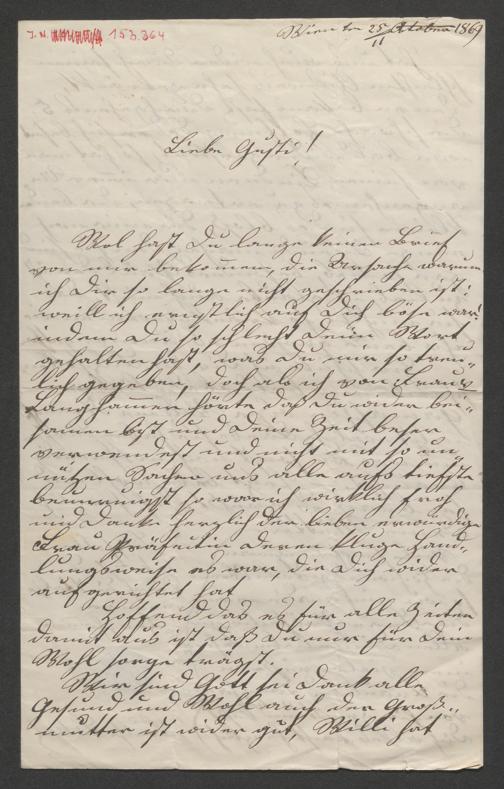 I. N. 153.364
Wien den 25/11 Oktober 1869
Liebe Gusti!
Wol hast Du lange keinen Brief
von mir bekommen, die Ursache warum
ich Dir so lange nicht geschrieben ist:
weill ich ernstlich auf Dich böse war!
indem Du so schlecht Dein Wort
gehalten hast, was Du mir so treu-
lich gegeben, doch als ich von Frau
Langhammer hörte daß Du wider bei-
samen bist und Deine Zeit beser
verwendest und nicht mit so un
nützen Sachen uns alle aufs tiefste
beunruhigst so war ich wirklich froh
und Danke herzlich der lieben erwürdige
Frau Präfectin deren kluge Hand-
lungsweise es war, die Dich wider
aufgerichtet hat
Hoffend das es für alle Zeiten
damit aus ist daß Du nur für Dein
Wohl sorge trägst.
Wir sind Gott sei Dank alle
Gesund und Wohl auch der Groß-
mutter ist wider gut, Willi hat